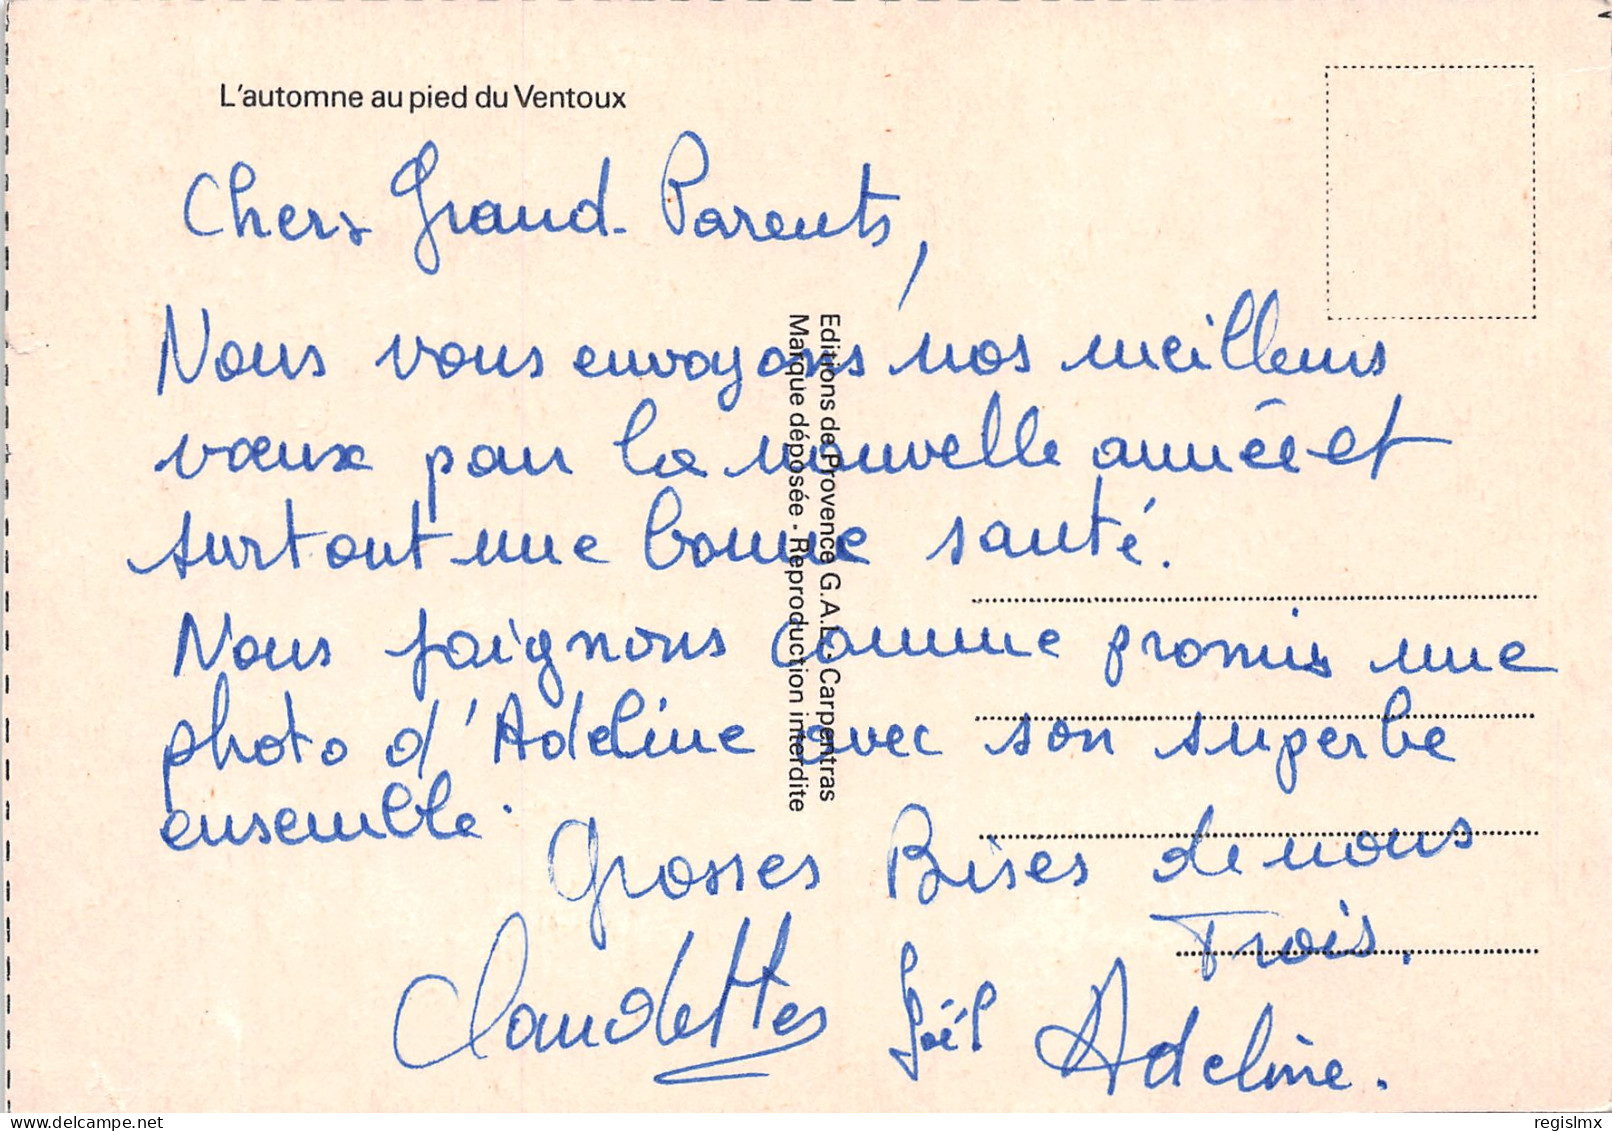 L'automne au pied du Ventoux
Chers Grand-Parents,
Nous vous envoyons nos meilleurs
vœux pour la nouvelle année et
surtout une bonne santé.
Nous joignons comme promis une
photo d'Adeline avec son superbe
ensemble.
Grosses Bises de nous
Trois.
Claudette Joël Adeline.
Editions de Provence G.A.L. - Carpentras
Marque déposée - Reproduction interdite
regislmx